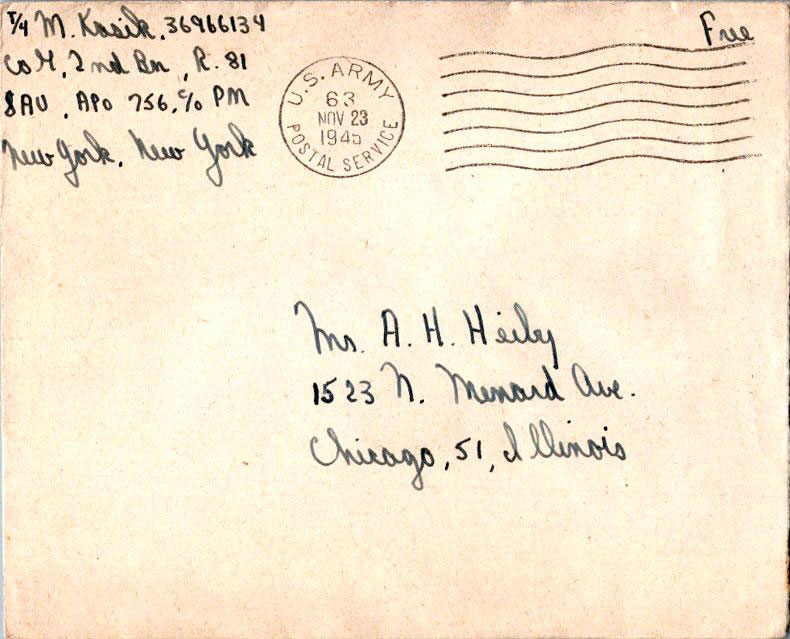 T/4 M. Kosik, 36966134
Co M, 2nd Bn, R. 81
SAU, APO 756, c/o PM
New York, New York
Free
U.S. ARMY
63
NOV 23
1945
POSTAL SERVICE
Mr. A. H. Heiby
1523 N. Menard Ave.
Chicago, 51, Illinois